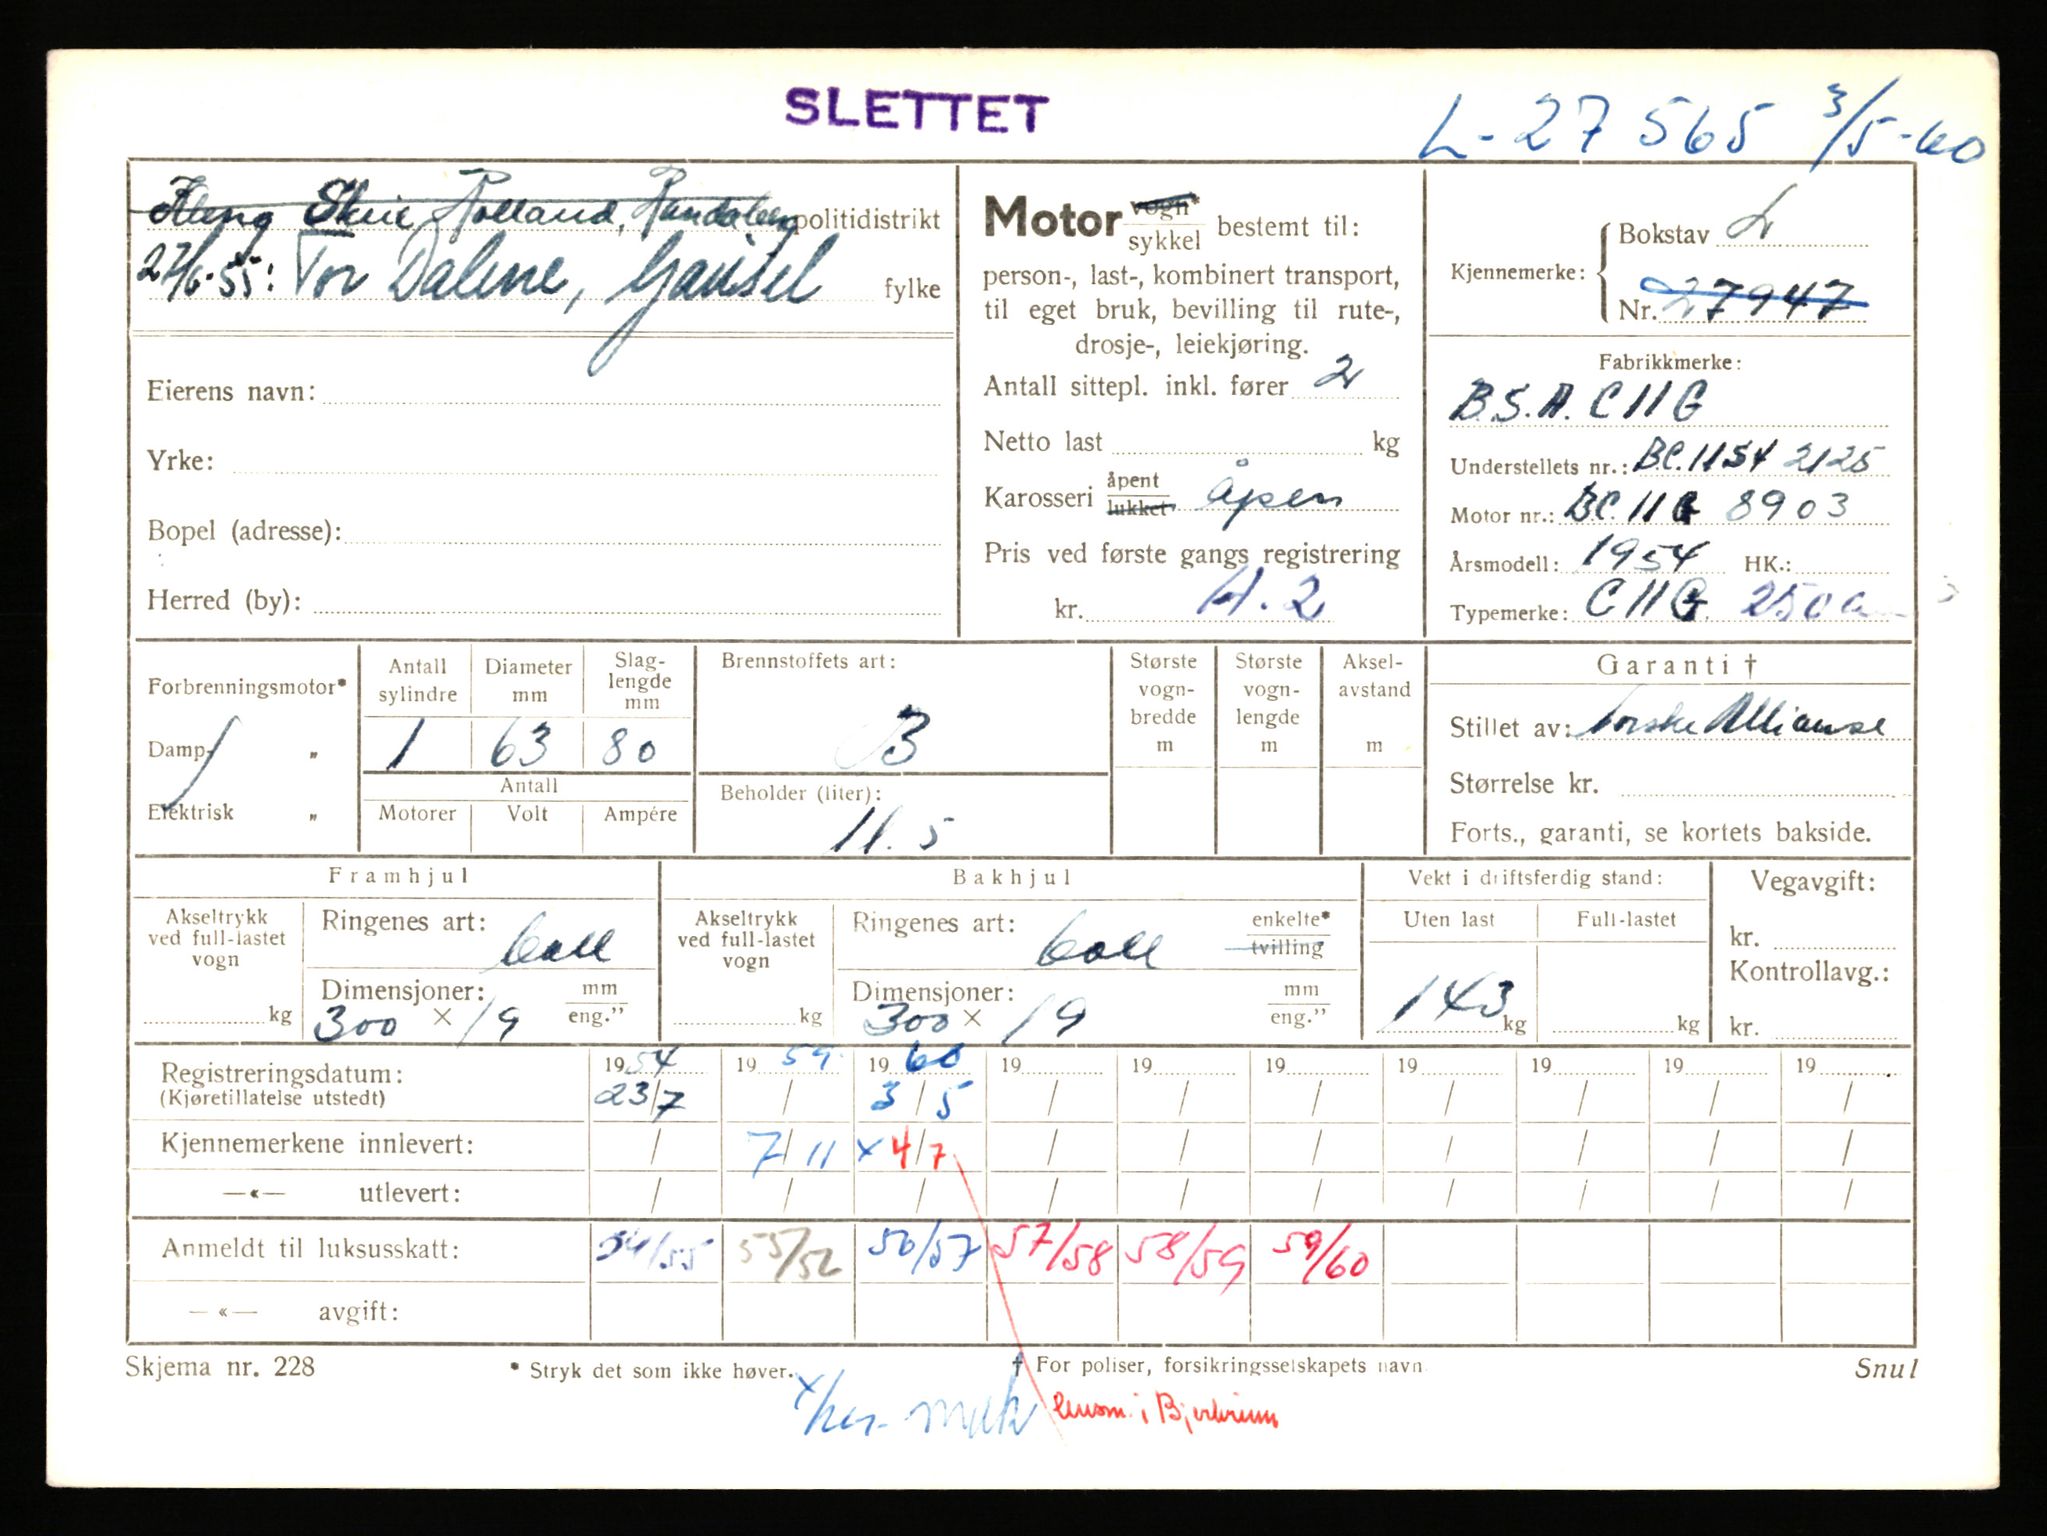 SLETTET
L-27565 3/5-60
Skrie, Rolland, Randaberg politidistrikt
27/6-55: Tor Dalene, Gausel fylke
Eierens navn:
Yrke:
Bopel (adresse):
Herred (by):
Motor vogn* sykkel bestemt til:
person-, last-, kombinert transport,
til eget bruk, bevilling til rute-,
drosje-, leiekjøring.
Antall sittepl. inkl. fører 2
Netto last kg
Karosseri åpent lukket åpen
Pris ved første gangs registrering
kr. H.2
Kjennemerke: Bokstav L
Nr. 27947
Fabrikkmerke:
B.S.A. C11G
Understellets nr.: B.C.11S4 2125
Motor nr.: B.C.11G 8903
Årsmodell: 1954 HK.:
Typemerke: C11G 250
Forbrenningsmotor*
Damp- „
Elektrisk „
Antall sylindre Diameter mm Slag-lengde mm
1 63 80
Antall
Motorer Volt Ampére
Brennstoffets art:
B
Beholder (liter):
11.5
Største vogn-bredde m Største vogn-lengde m Aksel-avstand m
Garanti †
Stillet av: Norske Allianse
Størrelse kr.
Forts., garanti, se kortets bakside.
Framhjul Bakhjul Vekt i driftsferdig stand: Vegavgift:
Akseltrykk ved full-lastet vogn kg
Ringenes art: Coll
Dimensjoner: mm eng.”
300 × 19
Akseltrykk ved full-lastet vogn kg
Ringenes art: Coll enkelte* tvilling
Dimensjoner: mm eng.”
300 × 19
Uten last Full-lastet
143 kg kg
kr.
Kontrollavg.:
kr.
Registreringsdatum: 1954 1959 1960 19 19 19 19 19 19 19
(Kjøretillatelse utstedt) 23/7 / 3/5 / / / / / / /
Kjennemerkene innlevert: / 7/11 x 4/7 / / / / / / /
—«— utlevert: / / / / / / / / / /
Anmeldt til luksusskatt: 54/55 55/56 56/57 57/58 58/59 59/60
—«— avgift:
Skjema nr. 228 * Stryk det som ikke høver. † For poliser, forsikringsselskapets navn Snul
i Bjerkreim